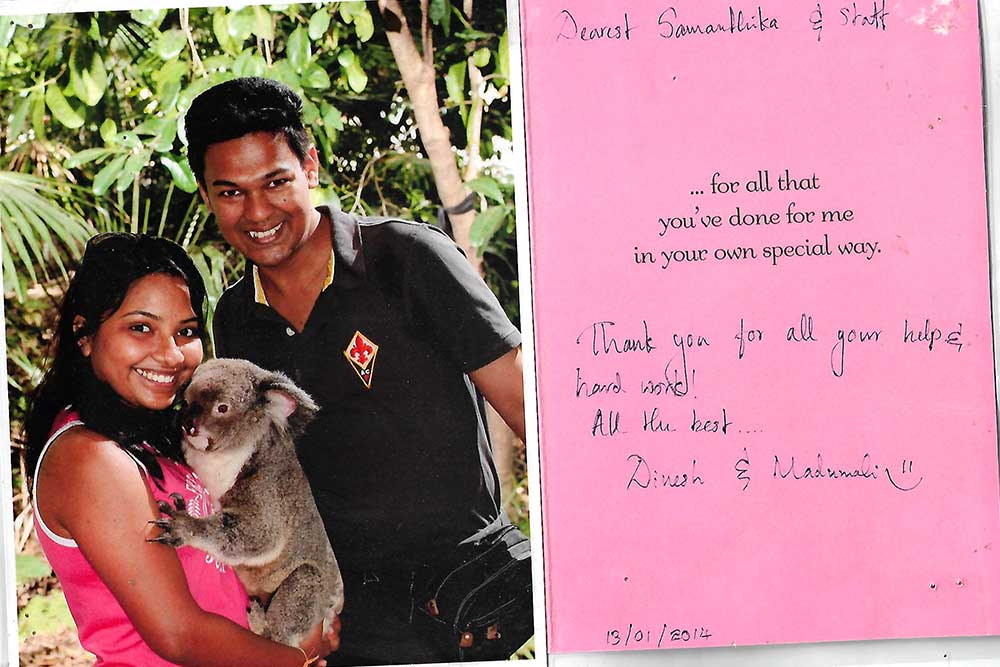 Dearest Samanthika & Staff
... for all that
you've done for me
in your own special way.
Thank you for all your help &
hard work!
All the best....
Dinesh & Madumali
13/01/2014